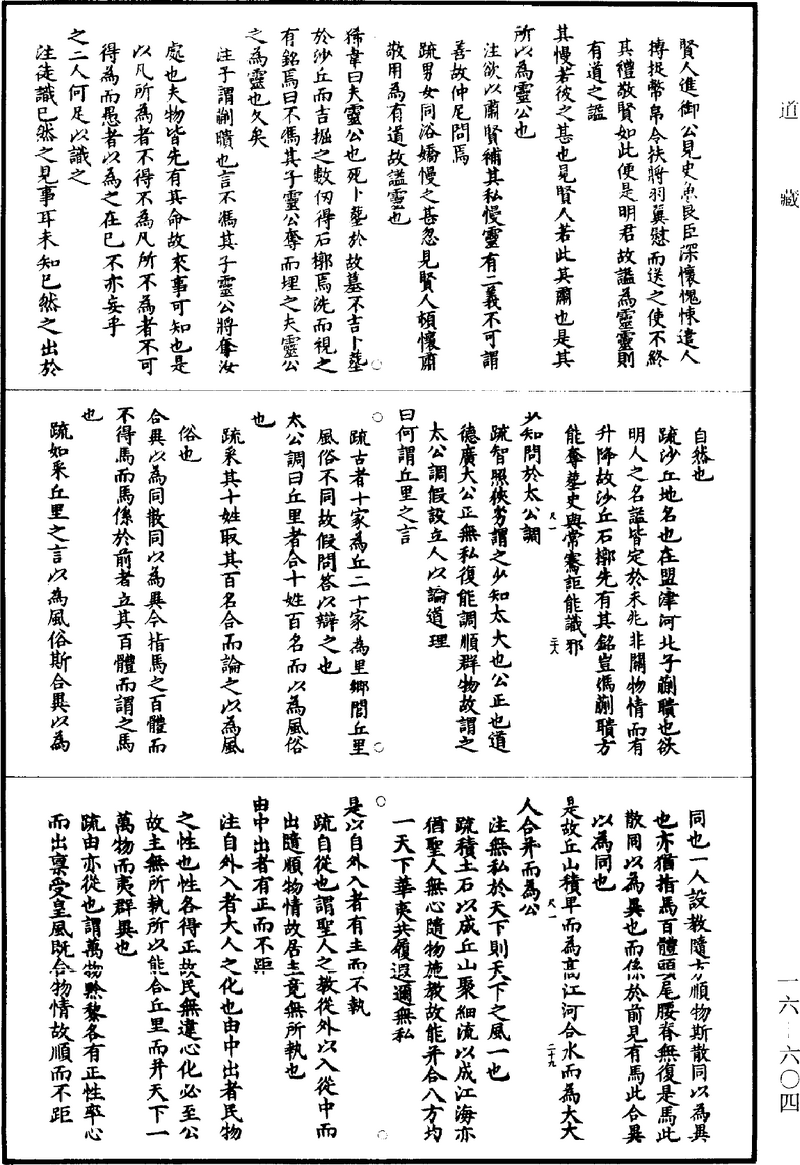 道藏
賢人進御公見史魚良臣深懷愧悚遣人
搏捉幣帛令扶將羽翼慰而送之使不終
其禮敬賢如此便是明君故謚為靈靈則
有道之謚
其慢若彼之甚也見賢人若此其肅也是其
所以為靈公也
注欲以肅賢補其私慢靈有二義不可謂
善故仲尼問焉
疏男女同浴嬌慢之甚忽見賢人頓懷肅
敬用為有道故謚靈也
狶韋曰夫靈公也死卜葬於故墓不吉卜葬
於沙丘而吉掘之數仞得石槨焉洗而視之
有銘焉曰不馮其子靈公奪而埋之夫靈公
之為靈也久矣
注子謂蒯聵也言不馮其子靈公將奪汝
處也夫物皆先有其命故來事可知也是
以凡所為者不得不為凡所不為者不可
得為而愚者以為之在已不亦妄乎
之二人何足以識之
注徒識已然之見事耳未知已然之出於
自然也
疏沙丘地名也在盟津河北子蒯聵也欲
明人之名謚皆定於未兆非關物情而有
升降故沙丘石槨先有其銘豈馮蒯聵方
能奪葬史與常騫詎能識邪
尺一 二十八
少知問於太公調
疏智照狹劣謂之少知太大也公正也道
德廣大公正無私復能調順群物故謂之
太公調假設立人以論道理
曰何謂丘里之言
疏古者十家為丘二十家為里鄉閭丘里
風俗不同故假問答以辯之也
太公調曰丘里者合十姓百名而以為風俗
也
疏采其十姓取其百名合而論之以為風
俗也
合異以為同散同以為異今指馬之百體而
不得馬而馬係於前者立其百體而謂之馬
也
疏如采丘里之言以為風俗斯合異以為
同也一人設教隨方順物斯散同以為異
也亦猶指馬百體頭尾腰脊無復是馬此
散同以為異也而係於前見有馬此合異
以為同也
是故丘山積卑而為高江河合水而為大大
尺一 二十九
人合并而為公
注無私於天下則天下之風一也
疏積土石以成丘山聚細流以成江海亦
猶聖人無心隨物施教故能并合八方均
一天下華夷共履遐邇無私
是以自外入者有主而不執
疏自從也謂聖人之教從外以入從中而
出隨順物情故居主竟無所執也
由中出者有正而不距
注自外入者大人之化也由中出者民物
之性也性各得正故民無違心化必至公
故主無所執所以能合丘里而并天下一
萬物而夷群異也
疏由亦從也謂萬物黔黎各有正性率心
而出稟受皇風既合物情故順而不距
一六—六〇四